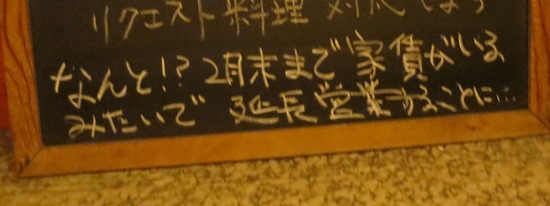 リクエスト料理 対応します
なんと!?2月末まで家賃がいる
みたいで 延長営業することに…